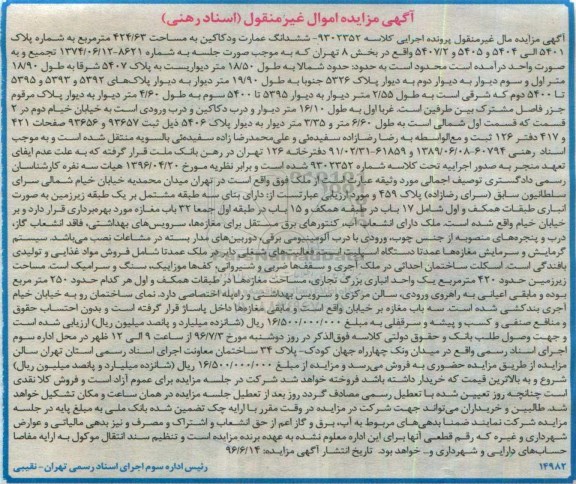 آگهی مزایده اموال غیرمنقول (اسناد رهنی)
آگهی مزایده مال غیرمنقول پرونده اجرایی کلاسه ۹۳۰۲۳۵۲- ششدانگ عمارت ودکاکین به مساحت ۴۲۴/۶۳ مترمربع به شماره پلاک
۵۴۰۱ الی ۵۴۰۴ و ۵۴۰۵ و ۵۴۰۷/۲ واقع در بخش ۸ تهران که به موجب صورت جلسه به شماره ۸۶۲۱-۱۳۷۴/۰۶/۱۲ تجمیع و به
صورت واحد در آمده است محدود است به حدود: حدود شمالا به طول ۱۸/۵۰ متر دیواریست به پلاک ۵۴۰۷ شرقا به طول ۱۸/۹۰
متر اول و سوم دیوار به دیوار دوم به دیوار پلاک ۵۳۲۶ جنوبا به طول ۱۹/۹۰ متر دیوار به دیوار پلاک‌های ۵۳۹۲ و ۵۳۹۳ و ۵۳۹۵
تا ۵۴۰۰ دوم که شرقی است به طول ۲/۵۵ متر دیوار به دیوار ۵۳۹۵ تا ۵۴۰۰ سوم به طول ۴/۶۰ متر دیوار به دیوار پلاک مرقوم
جزر فاصل مشترک بین طرفین است غربا اول به طول ۱۶/۱۰ متر دیوار و درب دکاکین و درب ورودی است به خیابان خیام دوم در ۲
قسمت که قسمت اول شمالی است به طول ۶/۶۰ متر و ۳/۳۵ متر دیوار به دیوار پلاک ۵۴۰۶ ذیل ثبت ۹۳۶۵۷ و ۹۳۶۵۶ صفحات ۴۲۱
و ۴۱۷ دفتر ۱۲۶ ثبت و مع‌الواسطه به رضا رضازاده سفیده‌ئی و علی‌محمدرضا زاده سفیده‌ئی بالسویه منتقل شده است و به موجب
اسناد رهنی ۶۰۷۹۴-۱۳۸۹/۰۶/۰۸ و ۶۱۸۵۹-۹۱/۰۲/۳۱ دفترخانه ۱۲۶ تهران در رهن بانک ملت قرار گرفته که به علت عدم ایفای
تعهد منجر به صدور اجراییه تحت کلاسه شماره ۹۳۰۲۳۵۲ شده است و برابر نظریه مورخ ۱۳۹۶/۰۴/۲۰ هیات سه نفره کارشناسان
رسمی دادگستری توصیف اجمالی مورد وثیقه عبارتست از ملک فوق واقع است در تهران میدان محمدیه خیابان خیام شمالی سرای
سلطانیون سابق (سرای رضازاده) پلاک ۴۵۹ و مورد ارزیابی عبارتست از: دارای بنای سه طبقه مشتمل بر یک طبقه زیرزمین به صورت
انباری طبقات همکف و اول شامل ۱۷ باب در طبقه همکف و ۱۵ باب در طبقه اول جمعا ۳۲ باب مغازه مورد بهره‌برداری قرار دارد و بر
خیابان خیام واقع شده است. ملک دارای انشعاب آب، کنتورهای برق مستقل برای مغازه‌ها، سرویس‌های بهداشتی، فاقد انشعاب گاز،
درب و پنجره‌های منصوبه از جنس چوب، ورودی با درب آلومینیومی برقی، دوربین‌های مدار بسته در مشاعات نصب می‌باشد. سیستم
گرمایش و سرمایش مغازه‌ها عمدتا دستگاه اسپلیت است. فعالیت‌های شغلی مستقر در ملک عمدتا شامل فروش مواد غذایی و تولیدی
بافندگی است. اسکلت ساختمان احداثی در ملک آجری و سقف‌ها ضربی و شیروانی، کف‌ها موزاییک، سنگ و سرامیک است. مساحت
زیرزمین حدود ۴۲۰ مترمربع یک واحد انباری بزرگ تجاری، مساحت مغازه‌ها در طبقات همکف و اول هر کدام حدود ۲۵۰ متر مربع
بوده و مابقی اعیانی به راهروی ورودی، سالن مرکزی و سرویس بهداشتی و راه‌پله اختصاصی دارد. نمای ساختمان رو به خیابان خیام
آجری بندکشی شده است. سه باب مغازه بر خیابان واقع است و مابقی مغازه‌ها داخل پاساژ قرار گرفته است و بدون احتساب حقوق
و منافع صنفی و کسب و پیشه و سرقفلی به مبلغ ۱۶/۵۰۰/۰۰۰/۰۰۰ ریال (شانزده میلیارد و پانصد میلیون ریال) ارزیابی شده است
و جهت وصول طلب بانک و حقوق دولتی کلاسه فوق‌الذکر در روز دوشنبه مورخ ۹۶/۷/۳ از ساعت ۹ الی ۱۲ ظهر در محل اداره سوم
اجرای اسناد رسمی واقع در میدان ونک چهارراه جهان کودک- پلاک ۳۴ ساختمان معاونت اجرای اسناد رسمی استان تهران سالن
مزایده از طریق مزایده حضوری به فروش می‌رسد و مزایده از مبلغ ۱۶/۵۰۰/۰۰۰/۰۰۰ ریال (شانزده میلیارد و پانصد میلیون ریال)
شروع و به بالاترین قیمت که خریدار داشته باشد فروخته خواهد شد شرکت در جلسه مزایده برای عموم آزاد است و فروش کلا نقدی
است چنانچه روز تعیین شده با تعطیل رسمی مصادف گردد روز بعد از تعطیل جلسه مزایده در همان ساعت و مکان تشکیل خواهد
شد. طالبین و خریداران می‌توانند جهت شرکت در مزایده در وقت مقرر با ارایه چک تضمین شده بانک ملی به مبلغ پایه در جلسه
مزایده شرکت نمایند ضمنا بدهی‌های مربوط به آب، برق و گاز اعم از حق انشعاب و اشتراک و مصرف و نیز بدهی مالیاتی و عوارض
شهرداری و غیره که رقم قطعی آنها برای این اداره معلوم نشده به عهده برنده مزایده است و تنظیم سند انتقال موکول به ارایه مفاصا
حساب‌های دارایی و شهرداری و.. خواهد بود. تاریخ انتشار آگهی مزایده: ۹۶/۶/۱۴
۱۴۹۸۲ رئیس اداره سوم اجرای اسناد رسمی تهران- نقیبی